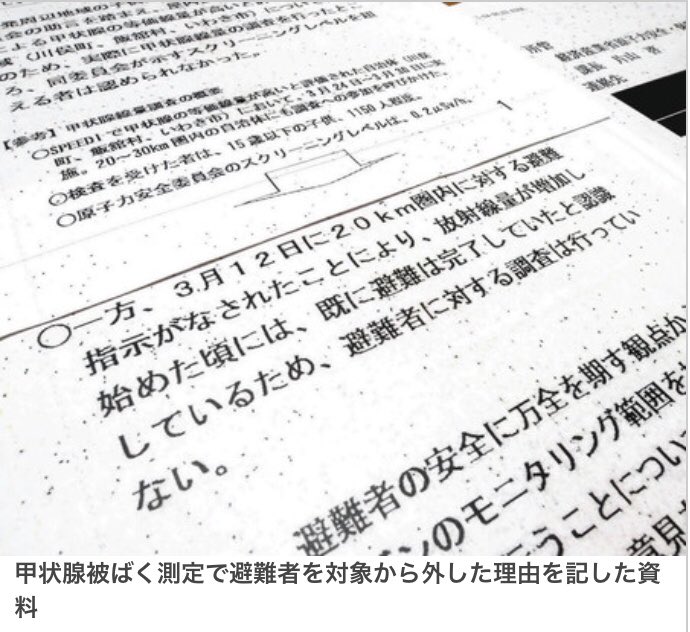 発周辺地域の子
会の助言を踏まえ、屋内
による甲状腺の等価線量が高いと
域（川俣町、飯舘村、いわき市）につい
のため、実際に甲状腺線量の調査を行ったと
ろ、同委員会が示すスクリーニングレベルを超
える者は認められなかった。
【参考】甲状腺線量調査の概要
○SPEEDIで甲状腺の等価線量が高いと評価された自治体（川俣
町、飯舘村、いわき市）において、3月24日～3月30日に実
施。20～30km圏内の自治体にも調査への参加を呼びかけた。
○検査を受けた者は、15歳以下の子供、1150人程度。
○原子力安全委員会のスクリーニングレベルは、0.2μSv/h。
1
○一方、3月12日に20km圏内に対する避難
指示がなされたことにより、放射線量が増加し
始めた頃には、既に避難は完了していたと認識
しているため、避難者に対する調査は行ってい
ない。
避難者の安全に万全を期す観点か
ンのモニタリング範囲を
うことについ
意見
甲状腺被ばく測定で避難者を対象から外した理由を記した資
料